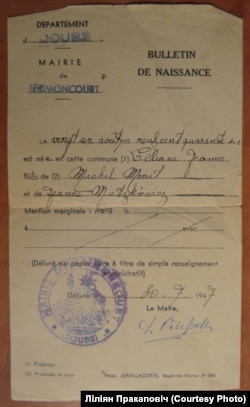 DEPARTEMENT
DOUBS
MAIRIE
de
HERIMONCOURT
BULLETIN
DE NAISSANCE
Le vingt un août neuf cent quarante
est née en cette commune (1) Liliane Jeanne
fille de (2) Michel
et de Jeanne
Mention marginale : marié le
à avec
(Délivré sur papier libre à titre de simple renseignement
administratif)
Délivré le 30-7-1947
Le Maire,
MAIRIE
(DOUBS)
(1) Prénoms
(2) Prénoms et nom
JEAN-LACOSTE,
Ліліян Пракаповіч (Courtesy Photo)